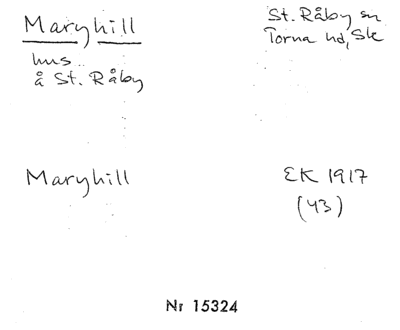 Maryhill
St. Råby sn
Torna hd, Sk
hus
å St. Råby
Maryhill
EK 1917
(43)
Nr 15324